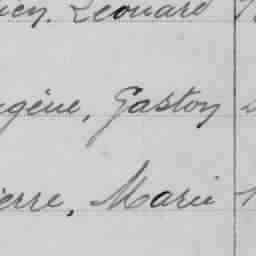 Léonard
Eugène, Gaston
Pierre, Marie